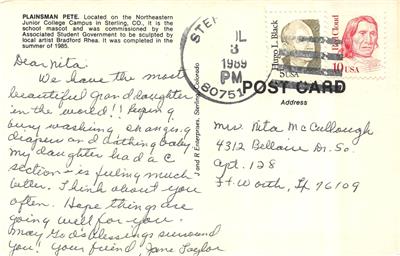 PLAINSMAN PETE. Located on the Northeastern
Junior College Campus in Sterling, CO., it is the
school mascot and was commissioned by the
Associated Student Government to be sculpted by
local artist Bradford Rhea. It was completed in the
summer of 1985.
Dear Nita:
We have the most
beautiful granddaughter
in the world!!
busy washing changing
diapers and bathing baby.
My daughter had a C
section - is feeling much
better. I think about you
often. Hope things are
going well for you.
May God's blessings surround
you! Your friend, Jane Taylor
J and R Enterprises, Sterling, Colorado
STE
JL
3
1989
PM
80751
Hugo L. Black
5 USA
Red Cloud
10 USA
POST CARD
Address
Mrs. Nita McCullough
4312 Bellaire Dr. So.
Apt. 128
Ft. Worth, TX 76109